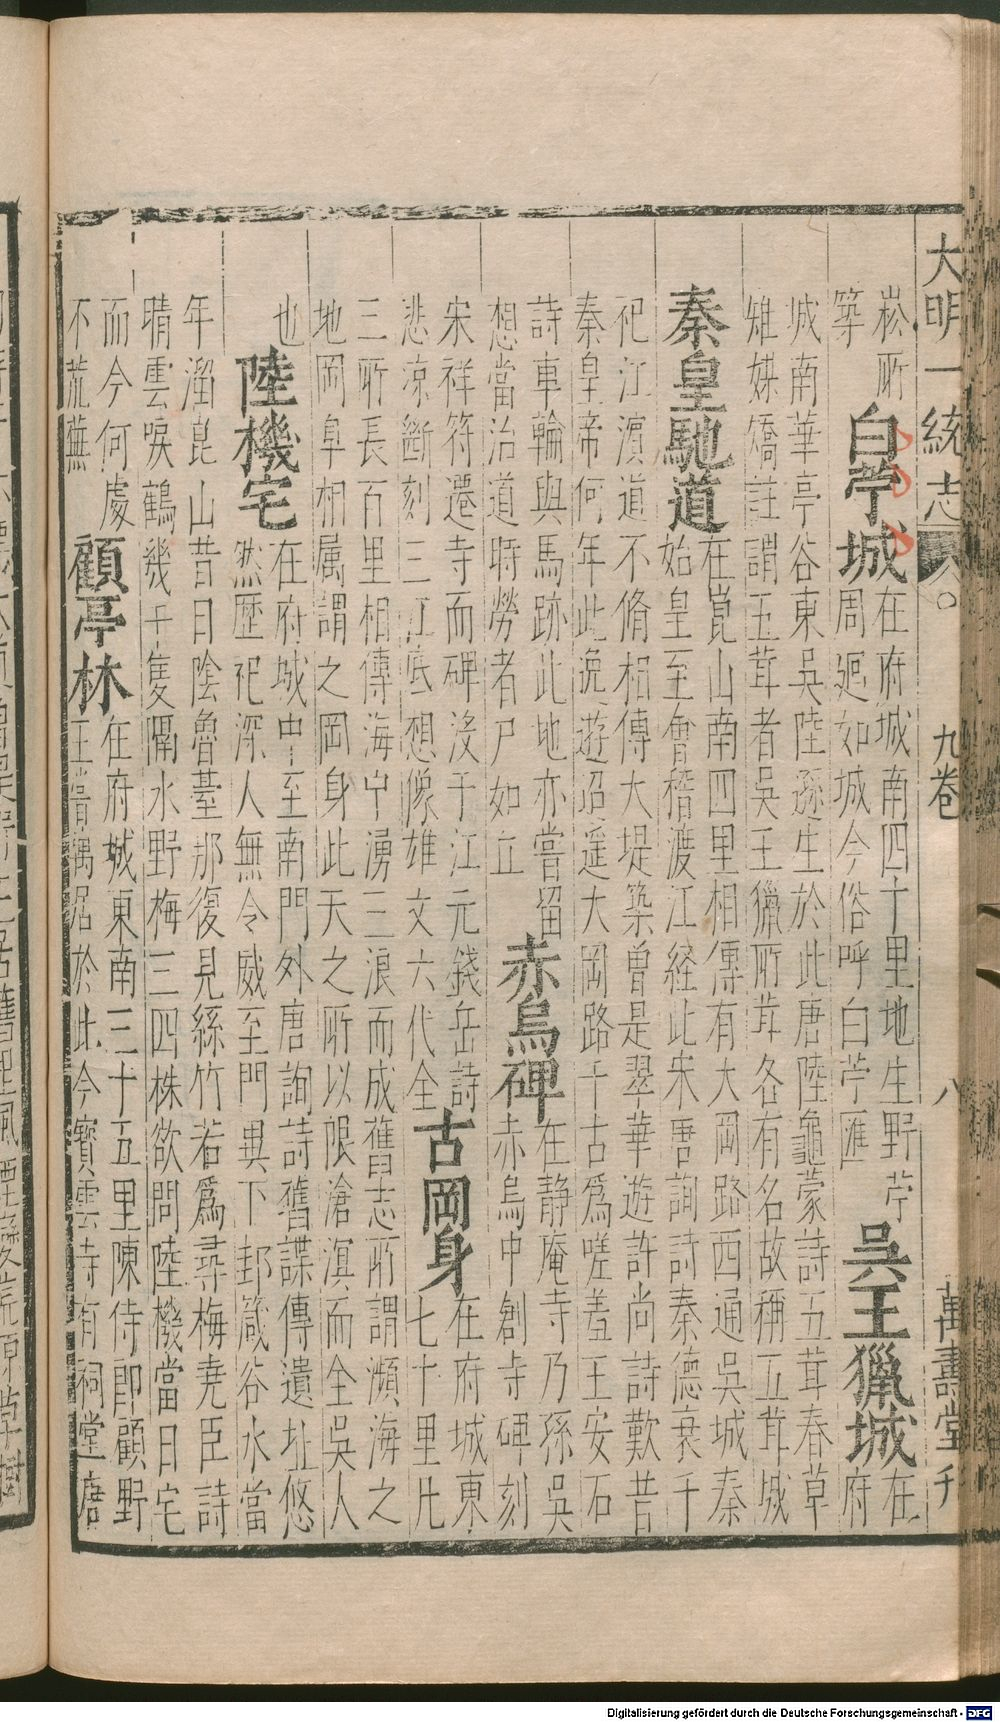 大明一統志 九卷 八 萬壽堂刊
崧所
築
白苧城
在府城南四十里地生野苧
周廻如城今俗呼白苧匯
吳王獵城
在
府
城南華亭谷東吳陸遜生於此唐陸龜蒙詩五茸春草
雉媒嬌註謂五茸者吳王獵所茸各有名故稱五茸城
秦皇馳道
在崑山南四里相傳有大岡路西通吳城秦
始皇至會稽渡江経此宋唐詢詩秦德衰千
祀江濵道不脩相傳大堤築曾是翠華遊許尚詩歎昔
秦皇帝何年此逸遊迢遥大岡路千古爲嗟羞王安石
詩車輪與馬跡此地亦嘗留
想當治道時勞者尸如丘
赤烏碑
在静庵寺乃孫吳
赤烏中創寺碑刻
宋祥符遷寺而碑没于江元錢岳詩
悲凉斷刻三江底想像雄文六代全
古岡身
在府城東
七十里凡
三所長百里相傳海中湧三浪而成舊志所謂瀕海之
地岡阜相属謂之岡身此天之所以限滄溟而全吳人
也
陸機宅
在府城中至南門外唐詢詩舊諜傳遺址悠
然歷祀深人無令威至門異下邽箴谷水當
年溜崑山昔日隂魯臺那復見絲竹若爲尋梅堯臣詩
晴雲唳鶴幾千隻隔水野梅三四株欲問陸機當日宅
而今何處
不荒蕪
顧亭林
在府城東南三十五里陳侍郎顧野
王嘗寓居於此今寳雲寺有祠堂唐
Digitalisierung gefördert durch die Deutsche Forschungsgemeinschaft - DFG